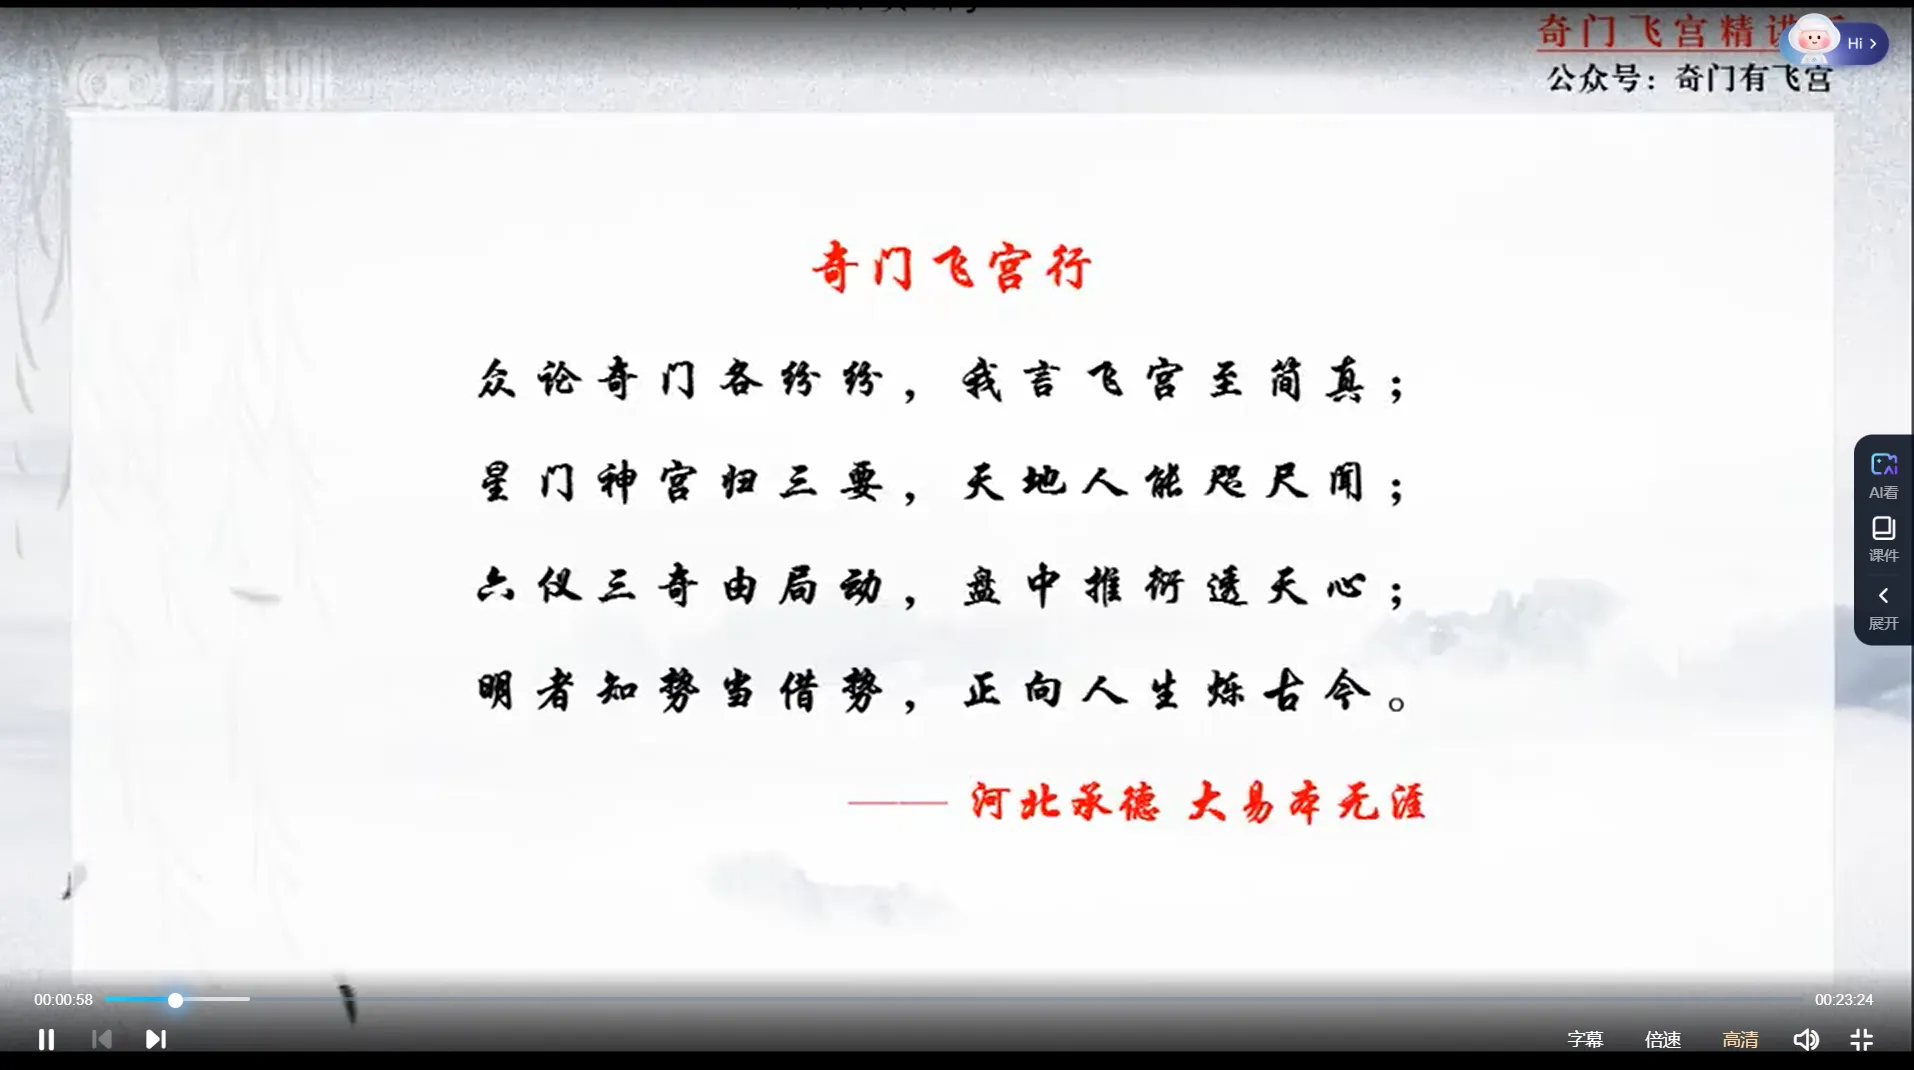 奇门飞宫精讲
Hi >
公众号：奇门有飞宫
奇门飞宫行
众论奇门各纷纷，我言飞宫至简真；
星门神宫归三要，天地人能咫尺闻；
六仪三奇由局动，盘中推衍透天心；
明者知势当借势，正向人生烁古今。
—— 河北承德 大易本无涯
AI看
课件
展开
00:00:58
00:23:24
字幕 倍速 高清